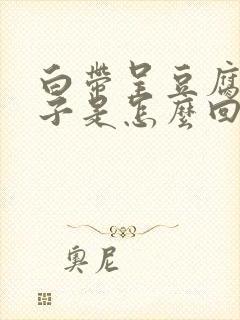 白帶呈豆腐
子是怎麼回
奧尼